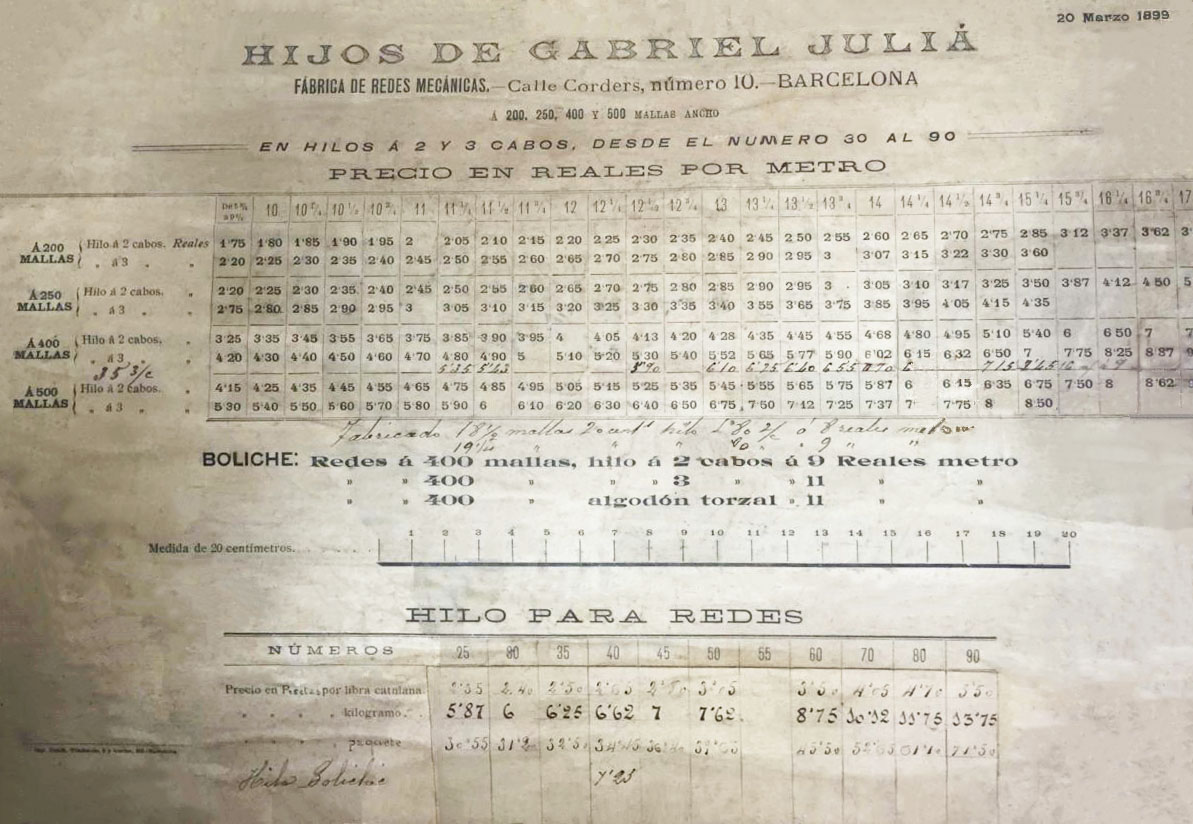 20 Marzo 1899
HIJOS DE GABRIEL JULIÁ
FÁBRICA DE REDES MECÁNICAS.—Calle Corders, número 10.—BARCELONA
Á 200, 250, 400 Y 500 MALLAS ANCHO
EN HILOS Á 2 Y 3 CABOS, DESDE EL NUMERO 30 AL 90
PRECIO EN REALES POR METRO
10 10 1/4 10 1/2 10 3/4 11 11 1/4 11 1/2 11 3/4 12 12 1/4 12 1/2 12 3/4 13 13 1/4 13 1/2 13 3/4 14 14 1/4 14 1/2 14 3/4 15 1/4 15 3/4 16 1/4 16 3/4 17
Á 200 MALLAS Hilo á 2 cabos. Reales 1'75 1'80 1'85 1'90 1'95 2 2'05 2'10 2'15 2'20 2'25 2'30 2'35 2'40 2'45 2'50 2'55 2'60 2'65 2'70 2'75 2'85 3'12 3'37 3'62
" á 3 " " 2'20 2'25 2'30 2'35 2'40 2'45 2'50 2'55 2'60 2'65 2'70 2'75 2'80 2'85 2'90 2'95 3 3'07 3'15 3'22 3'30 3'60
Á 250 MALLAS Hilo á 2 cabos. " 2'20 2'25 2'30 2'35 2'40 2'45 2'50 2'55 2'60 2'65 2'70 2'75 2'80 2'85 2'90 2'95 3 3'05 3'10 3'17 3'25 3'50 3'87 4'12 4'50 5
" á 3 " " 2'75 2'80 2'85 2'90 2'95 3 3'05 3'10 3'15 3'20 3'25 3'30 3'35 3'40 3'55 3'65 3'75 3'85 3'95 4'05 4'15 4'35
Á 400 MALLAS Hilo á 2 cabos. " 3'25 3'35 3'45 3'55 3'65 3'75 3'85 3'90 3'95 4 4'05 4'13 4'20 4'28 4'35 4'45 4'55 4'68 4'80 4'95 5'10 5'40 6 6'50 7
" á 3 " " 4'20 4'30 4'40 4'50 4'60 4'70 4'80 4'90 5 5'10 5'20 5'30 5'40 5'52 5'65 5'77 5'90 6'02 6'15 6'32 6'50 7 7'75 8'25 8'87 9
Á 500 MALLAS Hilo á 2 cabos. " 4'15 4'25 4'35 4'45 4'55 4'65 4'75 4'85 4'95 5'05 5'15 5'25 5'35 5'45 5'55 5'65 5'75 5'87 6 6'15 6'35 6'75 7'50 8 8'62
" á 3 " " 5'30 5'40 5'50 5'60 5'70 5'80 5'90 6 6'10 6'20 6'30 6'40 6'50 6'75 7'50 7'12 7'25 7'37 7' 7'75 8 8'50
Fabricado 18 1/2 mallas 20 cent hilo 2/c á 8 reales metro
BOLICHE: Redes á 400 mallas, hilo á 2 cabos á 9 Reales metro
" " 400 " " 3 " " 11 " "
" " 400 " algodón torzal " 11 " "
1 2 3 4 5 6 7 8 9 10 11 12 13 14 15 16 17 18 19 20
Medida de 20 centímetros.
HILO PARA REDES
NÚMEROS 25 30 35 40 45 50 55 60 70 80 90
Precio en Pesetas por libra catalana
" " " " kilogramo. 5'87 6 6'25 6'62 7 7'62 8'75 13'75
" " " " paquete
Hilo Boliche 7'25